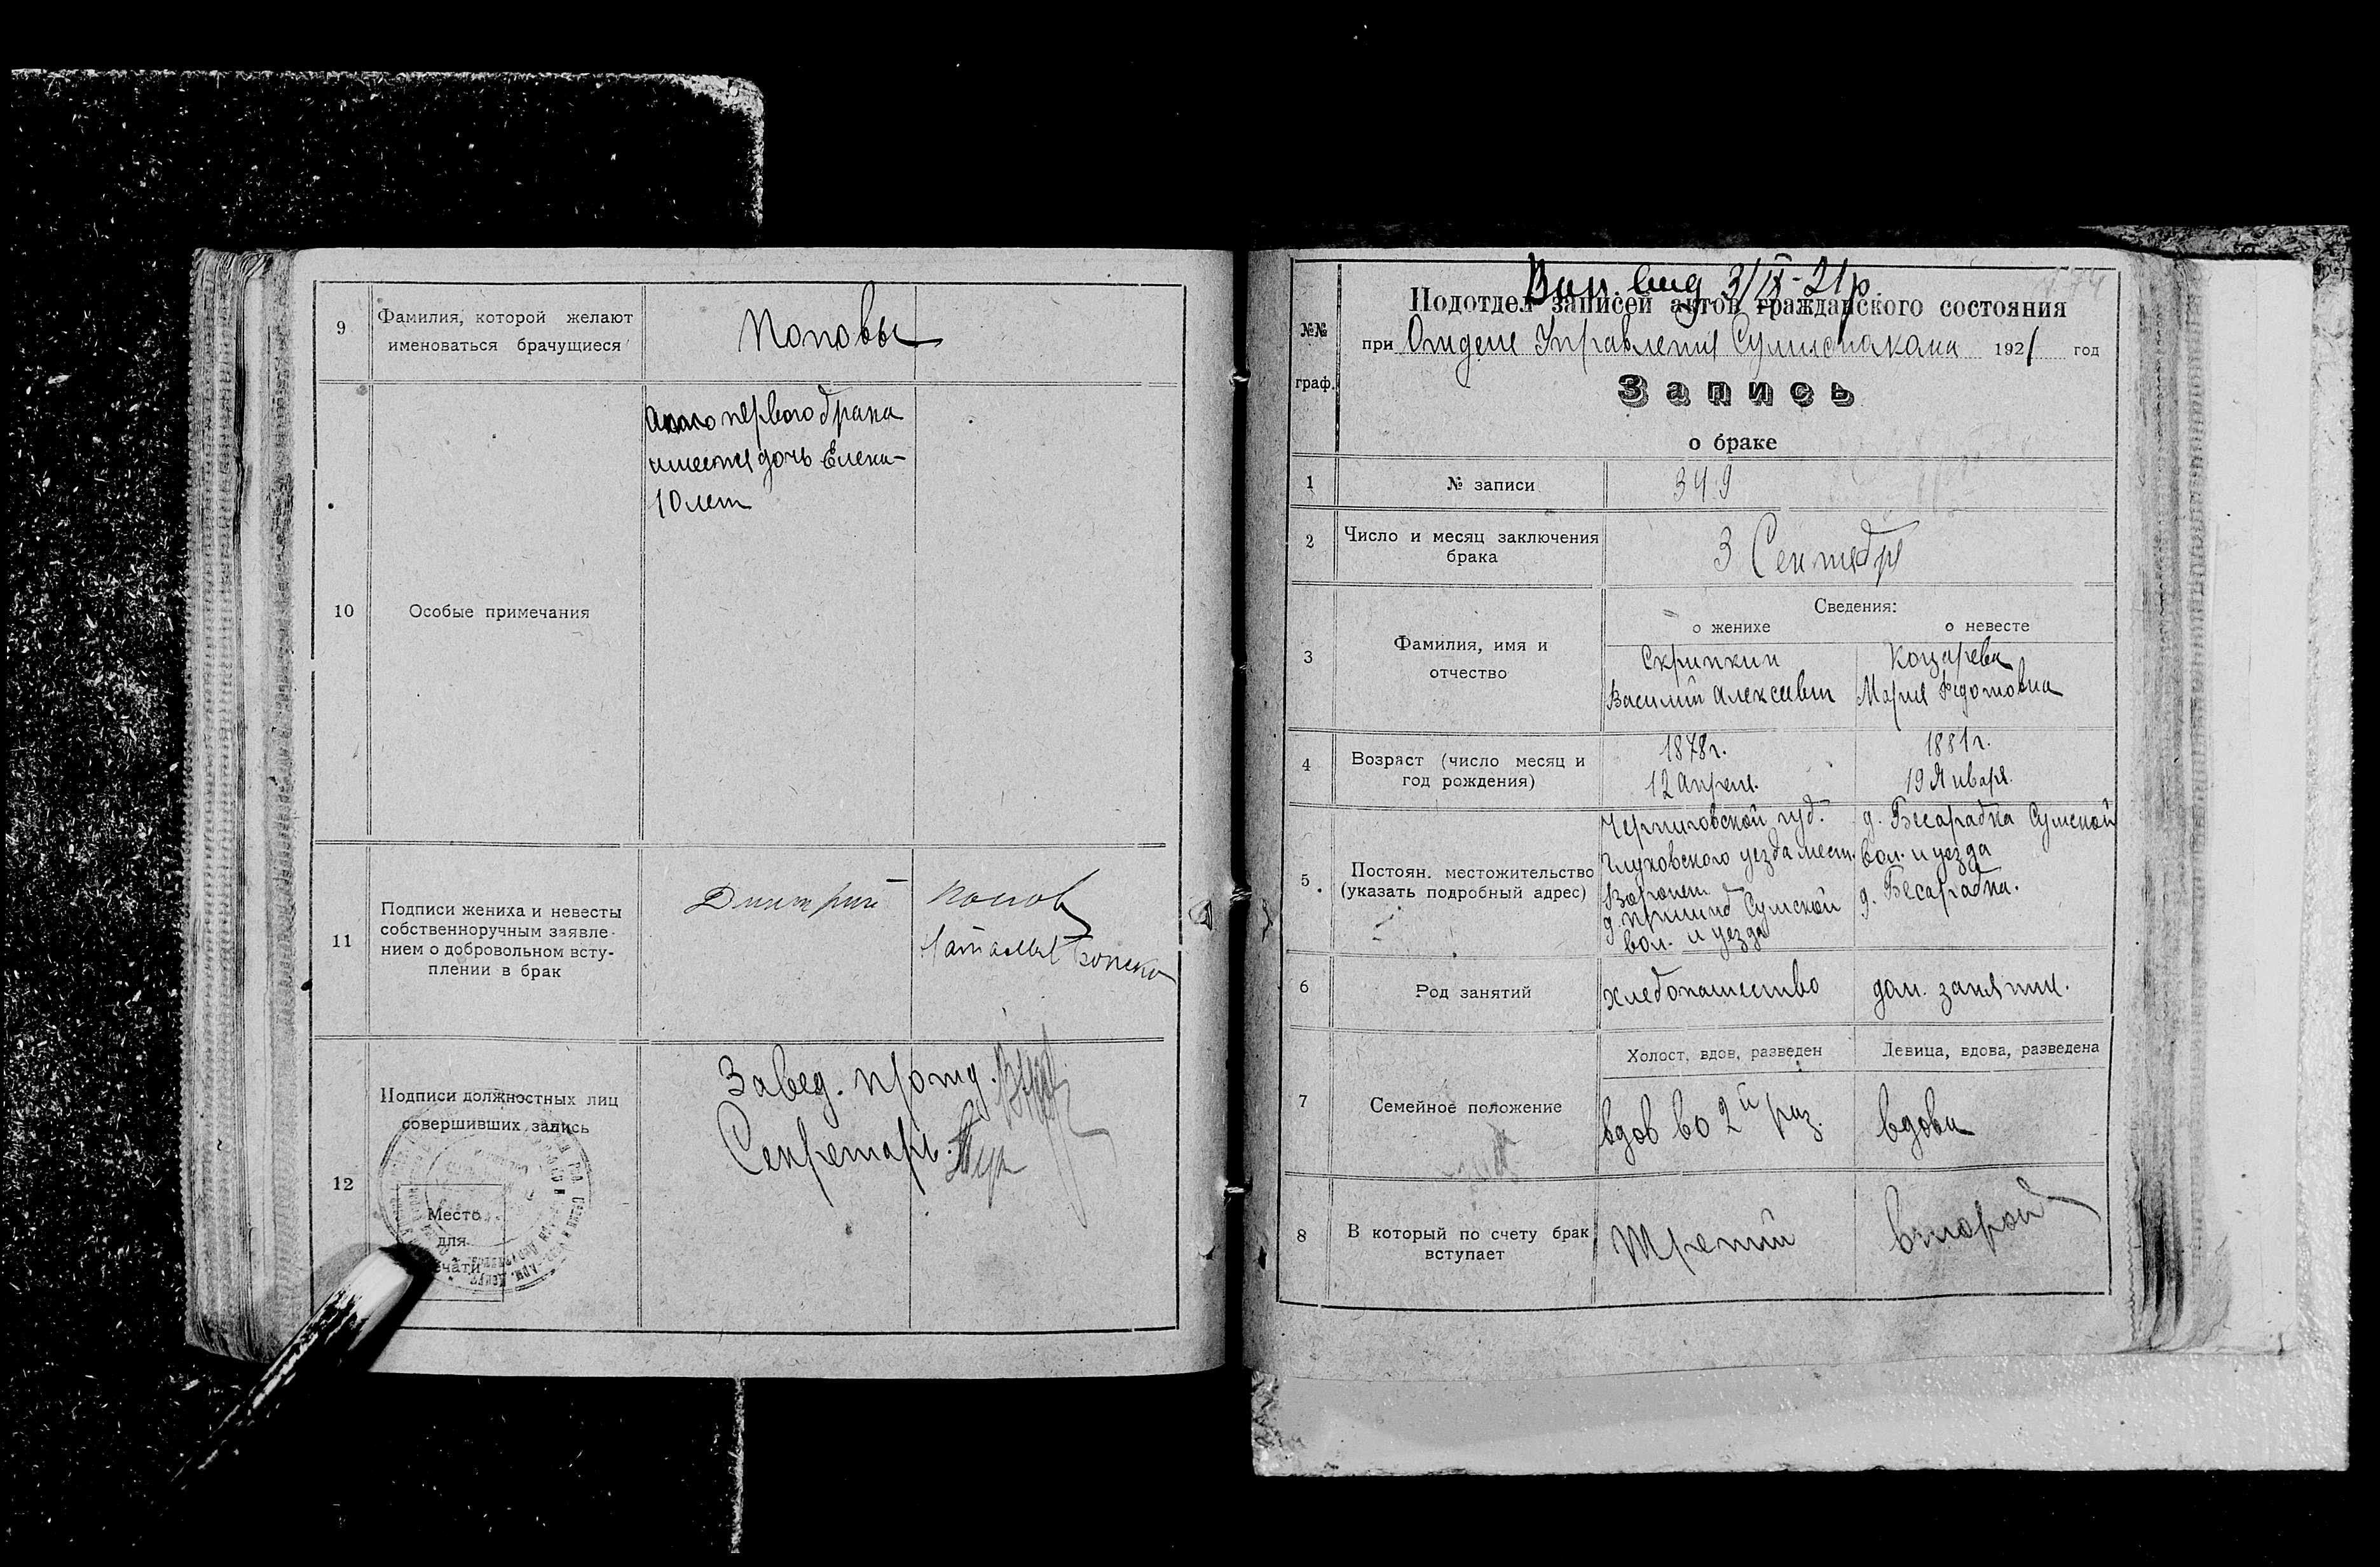 9
Фамилия, которой желают
именоваться брачущиеся
Поповы
10
Особые примечания
первого брака
имеется дочь Елена-
10 лет
11
Подписи жениха и невесты
собственноручным заявле-
нием о добровольном всту-
плении в брак
Дмитрий Попов
Наталья
12
Подписи должностных лиц
совершивших запись
Место
для
Завед.
Секретарь
3/IX-21р.
№№
граф.
Подотдел записей актов гражданского состояния
при Отделе Управления 1921 год
Запись
о браке
1
№ записи
349
2
Число и месяц заключения
брака
3 Сентября
3
Фамилия, имя и
отчество
Сведения:
о женихе
о невесте
Скрипкин
Василий Алексеевич
Козарева
Мария Федотовна
4
Возраст (число месяц и
год рождения)
1878г.
12 Апреля.
1881г.
19 Января.
5
Постоян. местожительство
(указать подробный адрес)
Черниговской губ.
Глуховского уезда мест.
Воронеж
д. Сумской
вол. и уезда
д. Бесарабка Сумской
вол. и уезда
д. Бесарабка.
6
Род занятий
хлебопашество
дом. занятия.
7
Семейное положение
Холост, вдов, разведен
Девица, вдова, разведена
вдов во 2й раз.
вдова
8
В который по счету брак
вступает
Третий
второй